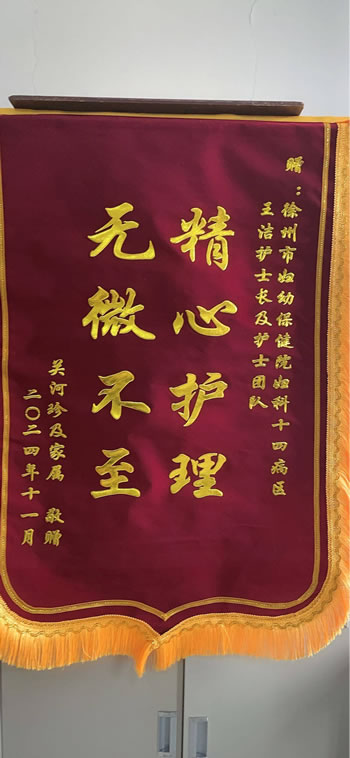 赠：徐州市妇幼保健院妇科十四病区
王洁护士长及护士团队
精心护理
无微不至
关河珍及家属 敬赠
二〇二四年十一月